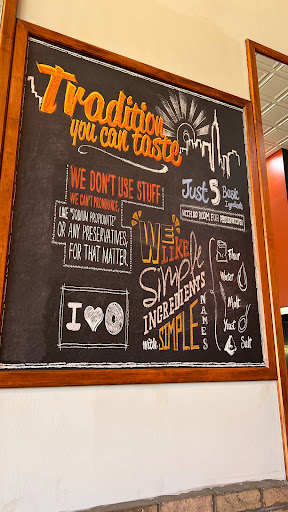 Tradition
you can taste
WE DON'T USE STUFF
WE CAN'T PRONOUNCE,
LIKE "SODIUM PROPIONATE"
OR ANY PRESERVATIVES,
FOR THAT MATTER.
I
Just 5 Basic
Ingredients
WITH NO ROOM FOR
"WE
LIKE
Simple
INGREDIENTS
with SIMPLE
NAMES
Flour
Water
Malt
Yeast
Salt